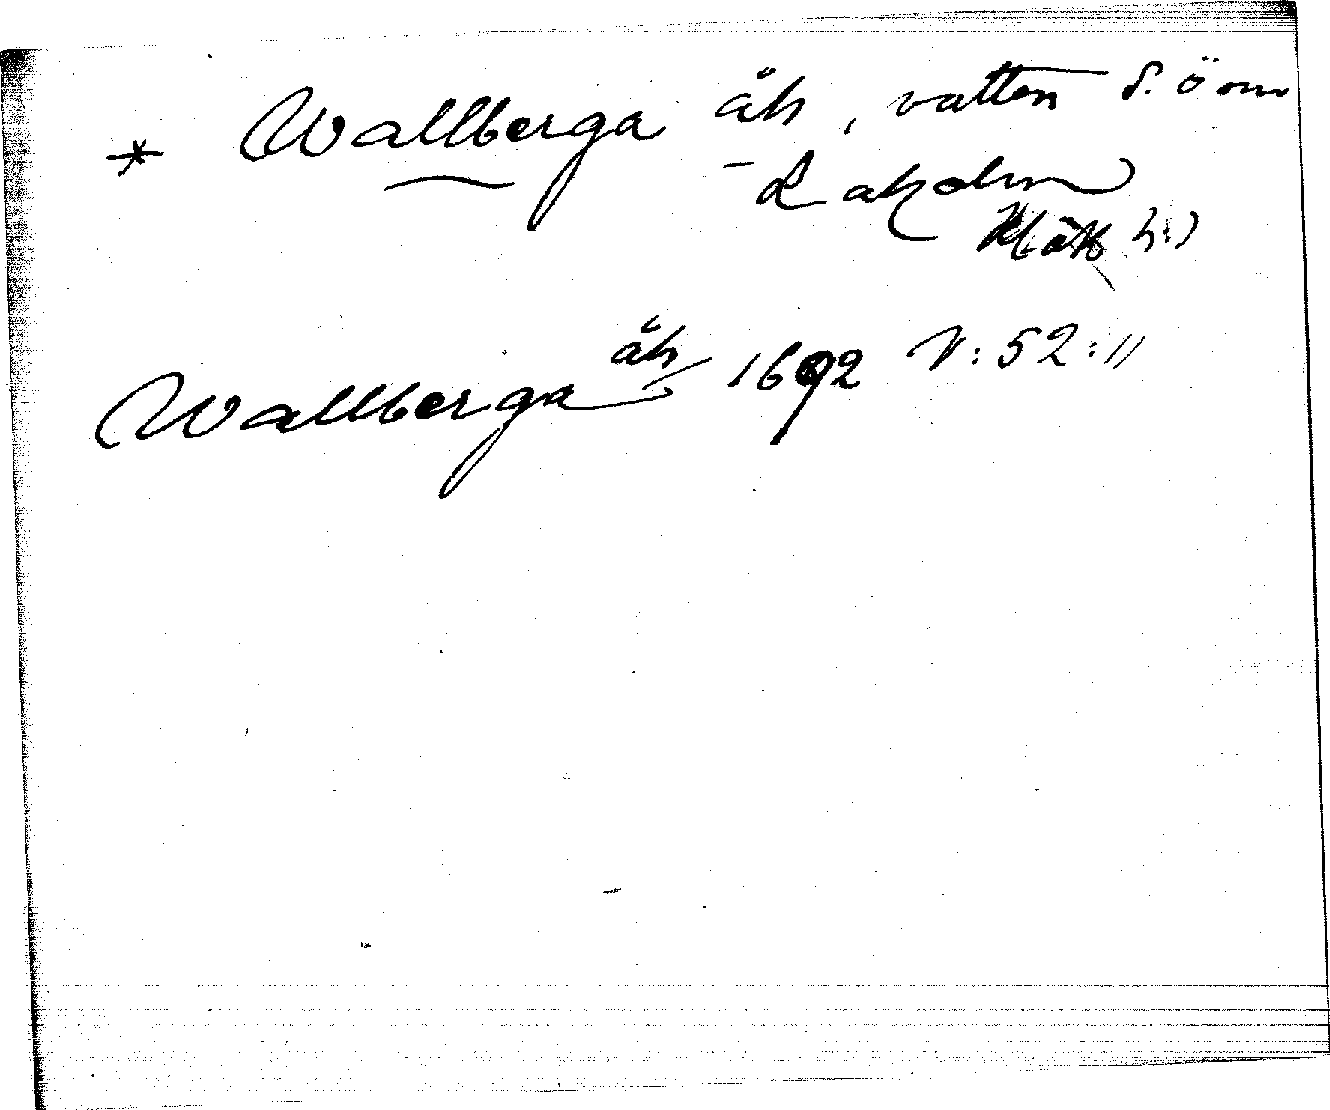 * Wallberga åh, vatten S. ö om
- Laholm
Hått h:)
Wallberga åh 1692 V:52:11